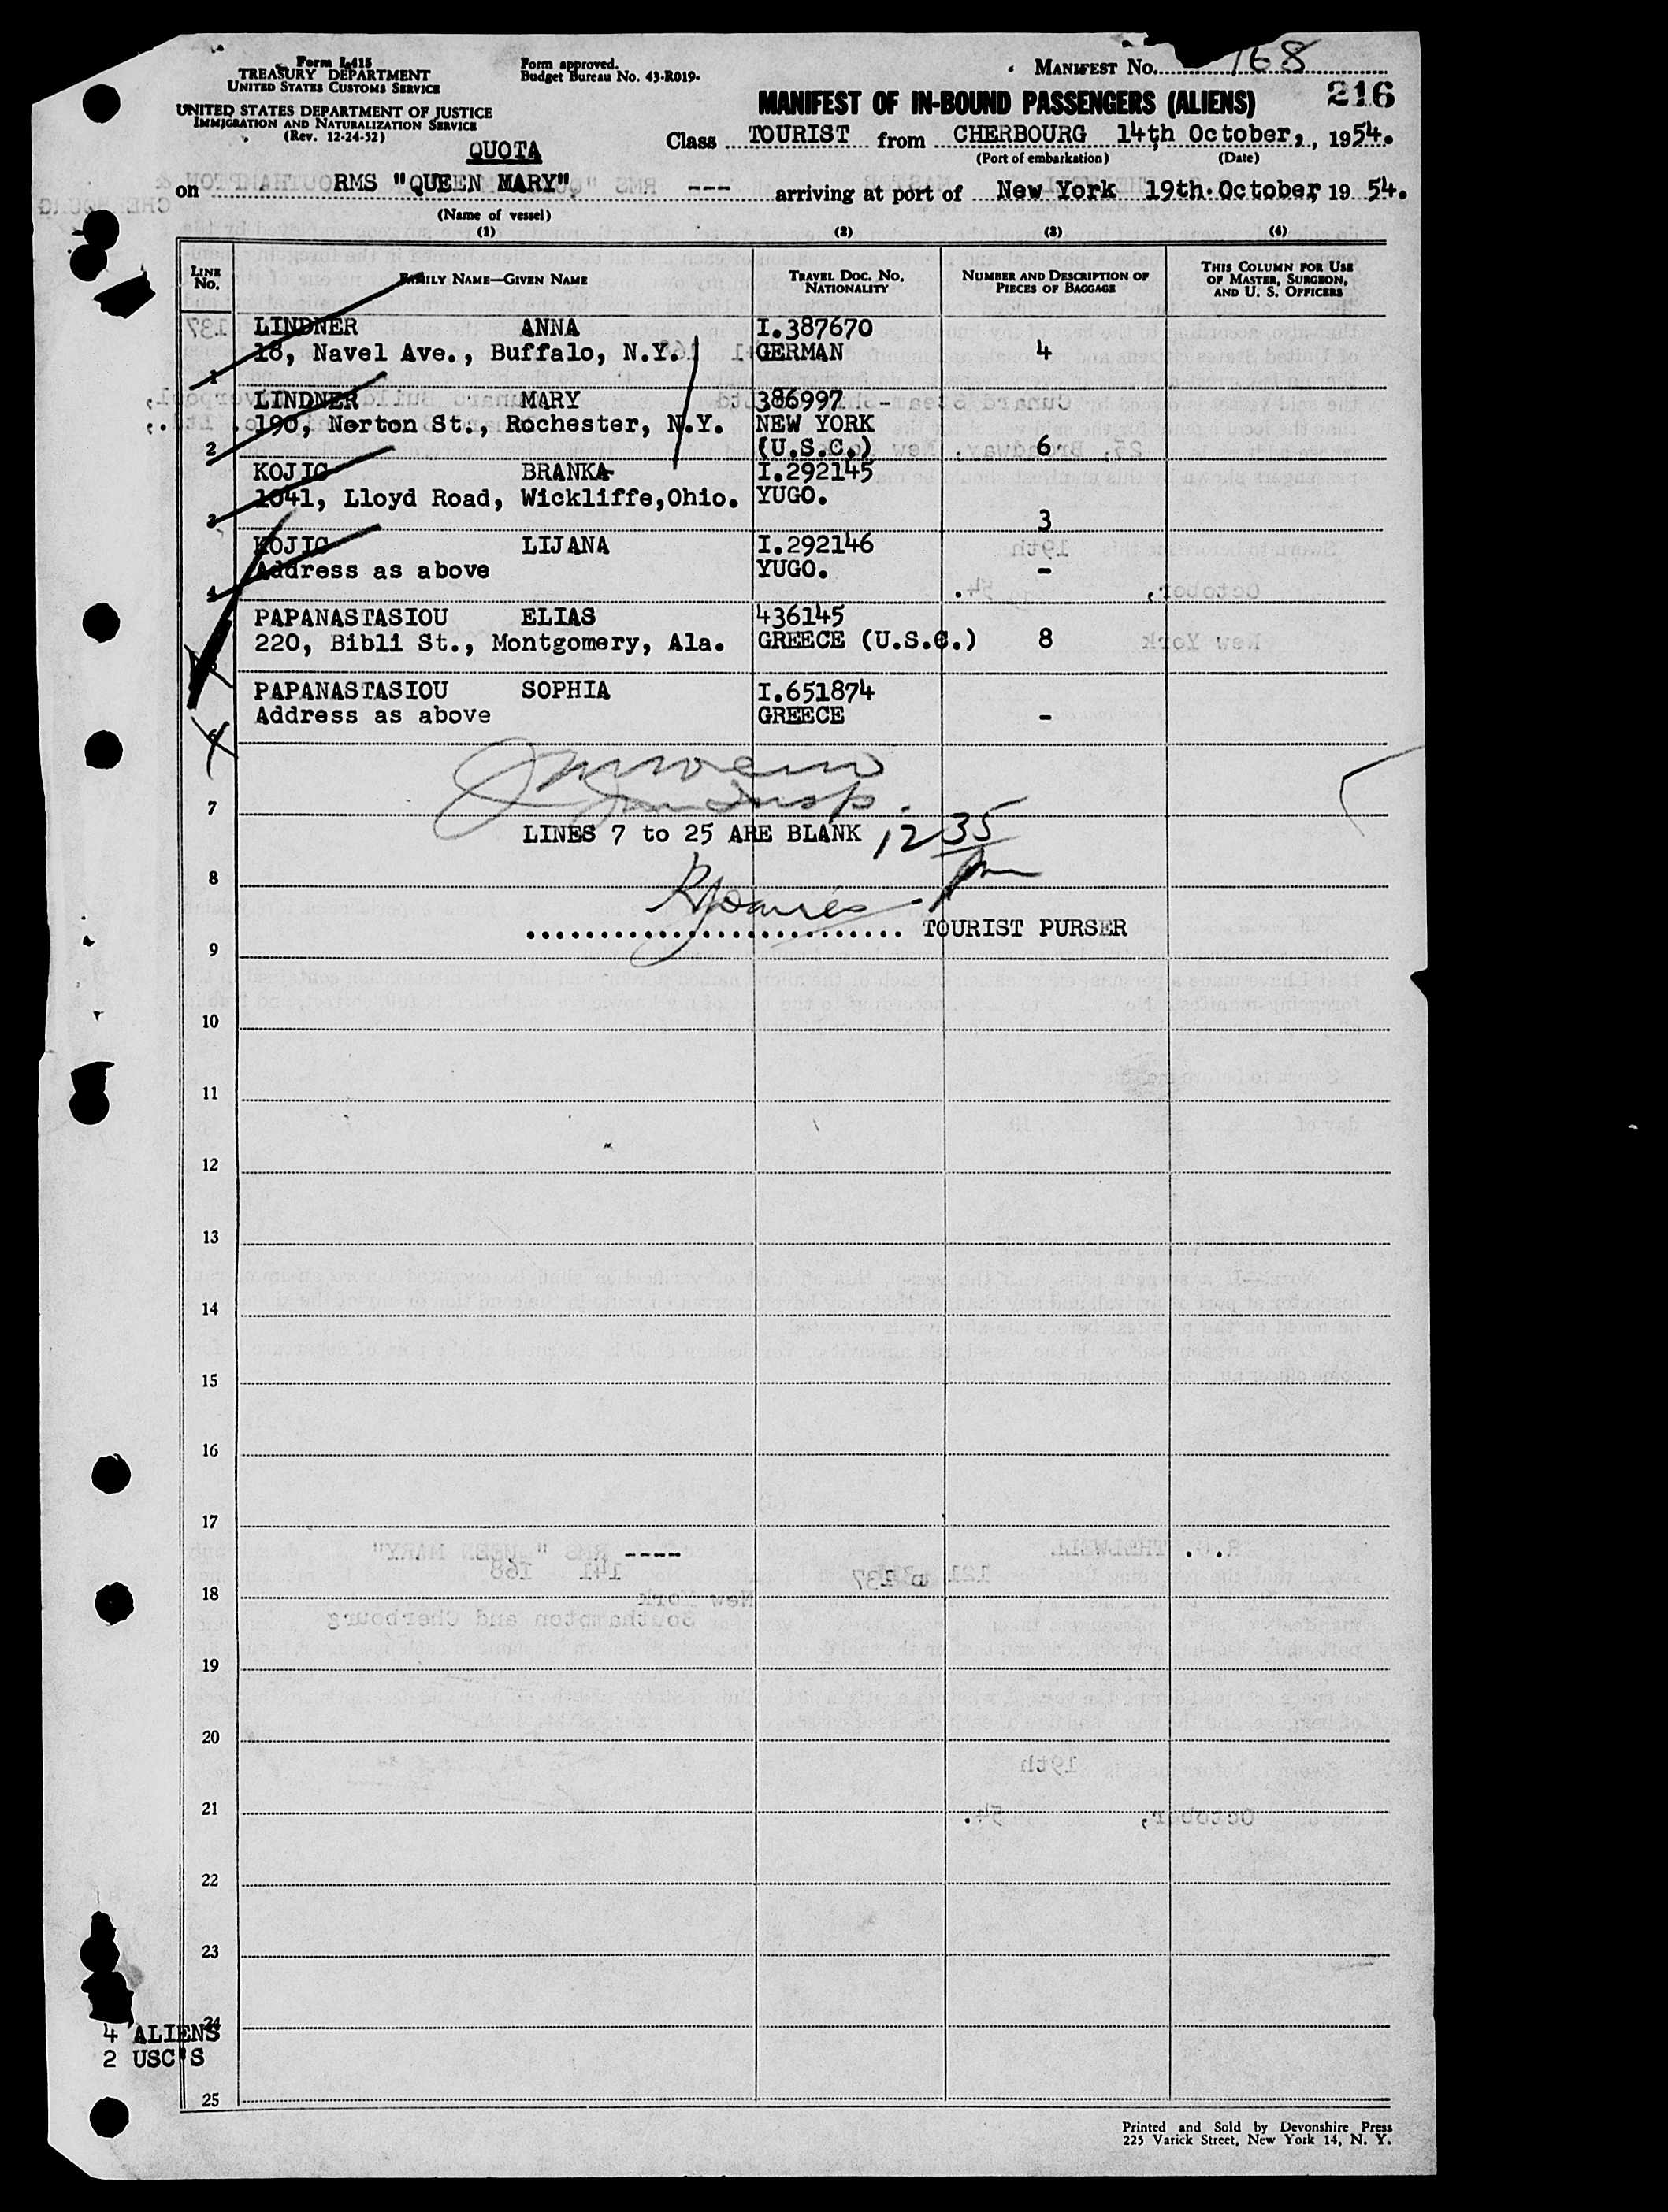 Form I-415
TREASURY DEPARTMENT
UNITED STATES CUSTOMS SERVICE
UNITED STATES DEPARTMENT OF JUSTICE
IMMIGRATION AND NATURALIZATION SERVICE
(Rev. 12-24-52)
Form approved.
Budget Bureau No. 43-R019-
MANIFEST No. 168
216
MANIFEST OF IN-BOUND PASSENGERS (ALIENS)
QUOTA
Class TOURIST from CHERBOURG 14th October, , 1954.
(Port of embarkation) (Date)
on RMS "QUEEN MARY" --- arriving at port of New York 19th October, 19 54.
(Name of vessel)
(1) (2) (3) (4)
LINE No. FAMILY NAME—GIVEN NAME TRAVEL DOC. NO. NATIONALITY NUMBER AND DESCRIPTION OF PIECES OF BAGGAGE THIS COLUMN FOR USE OF MASTER, SURGEON, AND U. S. OFFICERS
LINDNER ANNA I.387670
18, Navel Ave., Buffalo, N.Y. GERMAN 4
1
LINDNER MARY 386997
190, Norton St., Rochester, N.Y. NEW YORK
2 (U.S.C.) 6
KOJIC BRANKA I.292145
1041, Lloyd Road, Wickliffe,Ohio. YUGO.
3 3
KOJIC LIJANA I.292146
Address as above YUGO. -
4
PAPANASTASIOU ELIAS 436145
220, Bibli St., Montgomery, Ala. GREECE (U.S.C.) 8
5
PAPANASTASIOU SOPHIA I.651874
Address as above GREECE -
6
7
LINES 7 to 25 ARE BLANK 12 35 pm
8
TOURIST PURSER
9
10
11
12
13
14
15
16
17
18
19
20
21
22
23
24
4 ALIENS
2 USC'S
25
Printed and Sold by Devonshire Press
225 Varick Street, New York 14, N. Y.